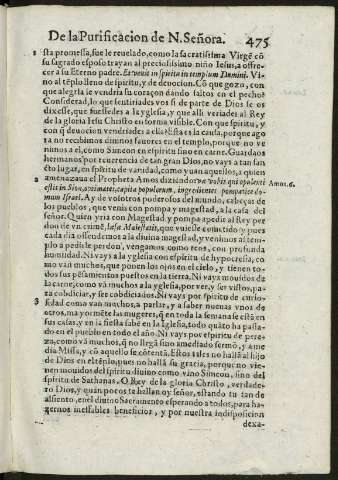 De la Purificacion de N. Señora. 475
1 sta promessa, fue le reuelado, como la sacratissima Virgẽ cõ
su sagrado esposo trayan al preciosissimo niño Iesus, a offre-
cer a su eterno padre. Et venit in spiritu in templum Domini. Vi-
no al tẽplo lleno de spiritu, y de deuocion. Cõ que gozo, con
que alegria le vendria su coraçon dando saltos en el pecho?
Considerad, lo que sentiriades vos si de parte de Dios se os
dixesse, que fuessedes a la yglesia, y que alli veriades al Rey
de la gloria Iesu Christo en forma visible. Con que spiritu, y
con q̃ deuocion vendriades a ella? Esta es la causa, porque ago
ra no recibimos diuinos fauores en el templo, porque no ve
nimos a el, como Simeon en spiritu sino en carne. Guardaos
hermanos por reuerencia de tan gran Dios, no vays a tan san
cto lugar, en spiritu de vanidad, como yuan aquellos, a quien
2 amenazaua el Propheta Amos diziendo: væ vobis qui opulenti Amos. 6.
estis in Sion, optimates, capita populorum, ingredientes pompatice do-
mum Israel. Ay de vosotros poderosos del mundo, cabeças de
los pueblos, que venis con pompa y magestad, a la casa del
señor. Quien yria con Magestad y pompa a pedir al Rey per
don de vn crimẽ, læsæ Maiestatis, que vuiesse cometido? y pues
cada dia offendemos a la diuina magestad, y venimos al tem-
plo a pedirle perdon, vengamos como reos, con profunda
humildad. Ni vays a la yglesia con spiritu de hypocresia, co-
mo van muchos, que ponen los ojos en el cielo, y tienen to-
dos sus pẽsamientos puestos en la tierra. Ni vays mouidos de
la carne, como vã muchos a la yglesia, por ver, y ser vistos, pa-
ra cobdiciar, y ser cobdiciados. Ni vays por spiritu de curio-
3 sidad como van muchos, a parlar, y a saber nueuas vnos de
otros, mayormẽte las mugeres, q̃ en toda la semana se estã en
sus casas, y en la fiesta sabẽ en la Yglesia, todo quãto ha passa-
do en el pueblo en todo el año. Ni vays por espiritu de pere-
za, como vã muchos, q̃ no llegã sino a mediado sermõ, y a me
dia Missa, y cõ aquello se cõtentã. Estos tales no hallã al hijo
de Dios en el tẽplo, pues no hallã su gracia, porque no vie-
nen mouidos del spiritu diuino como vino Simeon, sino del
spiritu de Sathanas. O Rey de la gloria Christo, verdade-
ro Dios, y quan pocos te hallan oy señor, estando tu tan de
assiento, en el diuino Sacramento esperando a todos, para ha-
zernos inefables beneficios, y por nuestra indisposicion
dexa-